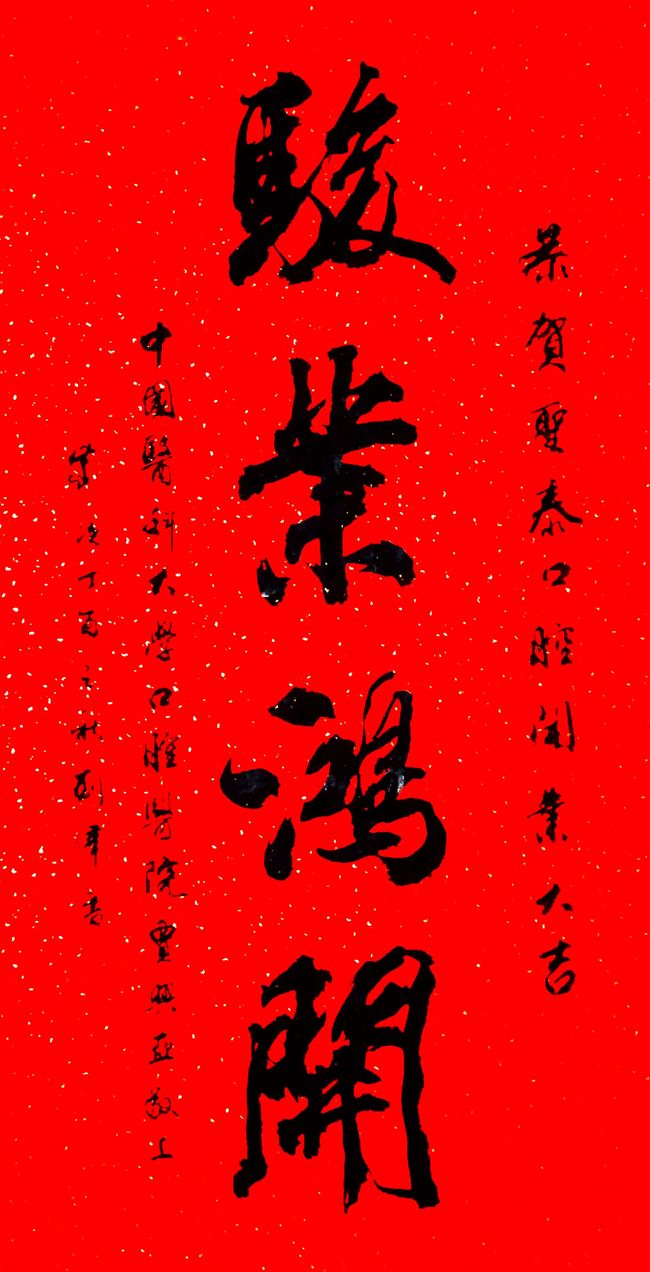 恭賀聖泰口腔開業大吉
駿業鴻開
中國醫科大學口腔醫院賈興亞敬上
歲次丁酉之秋劉軍書